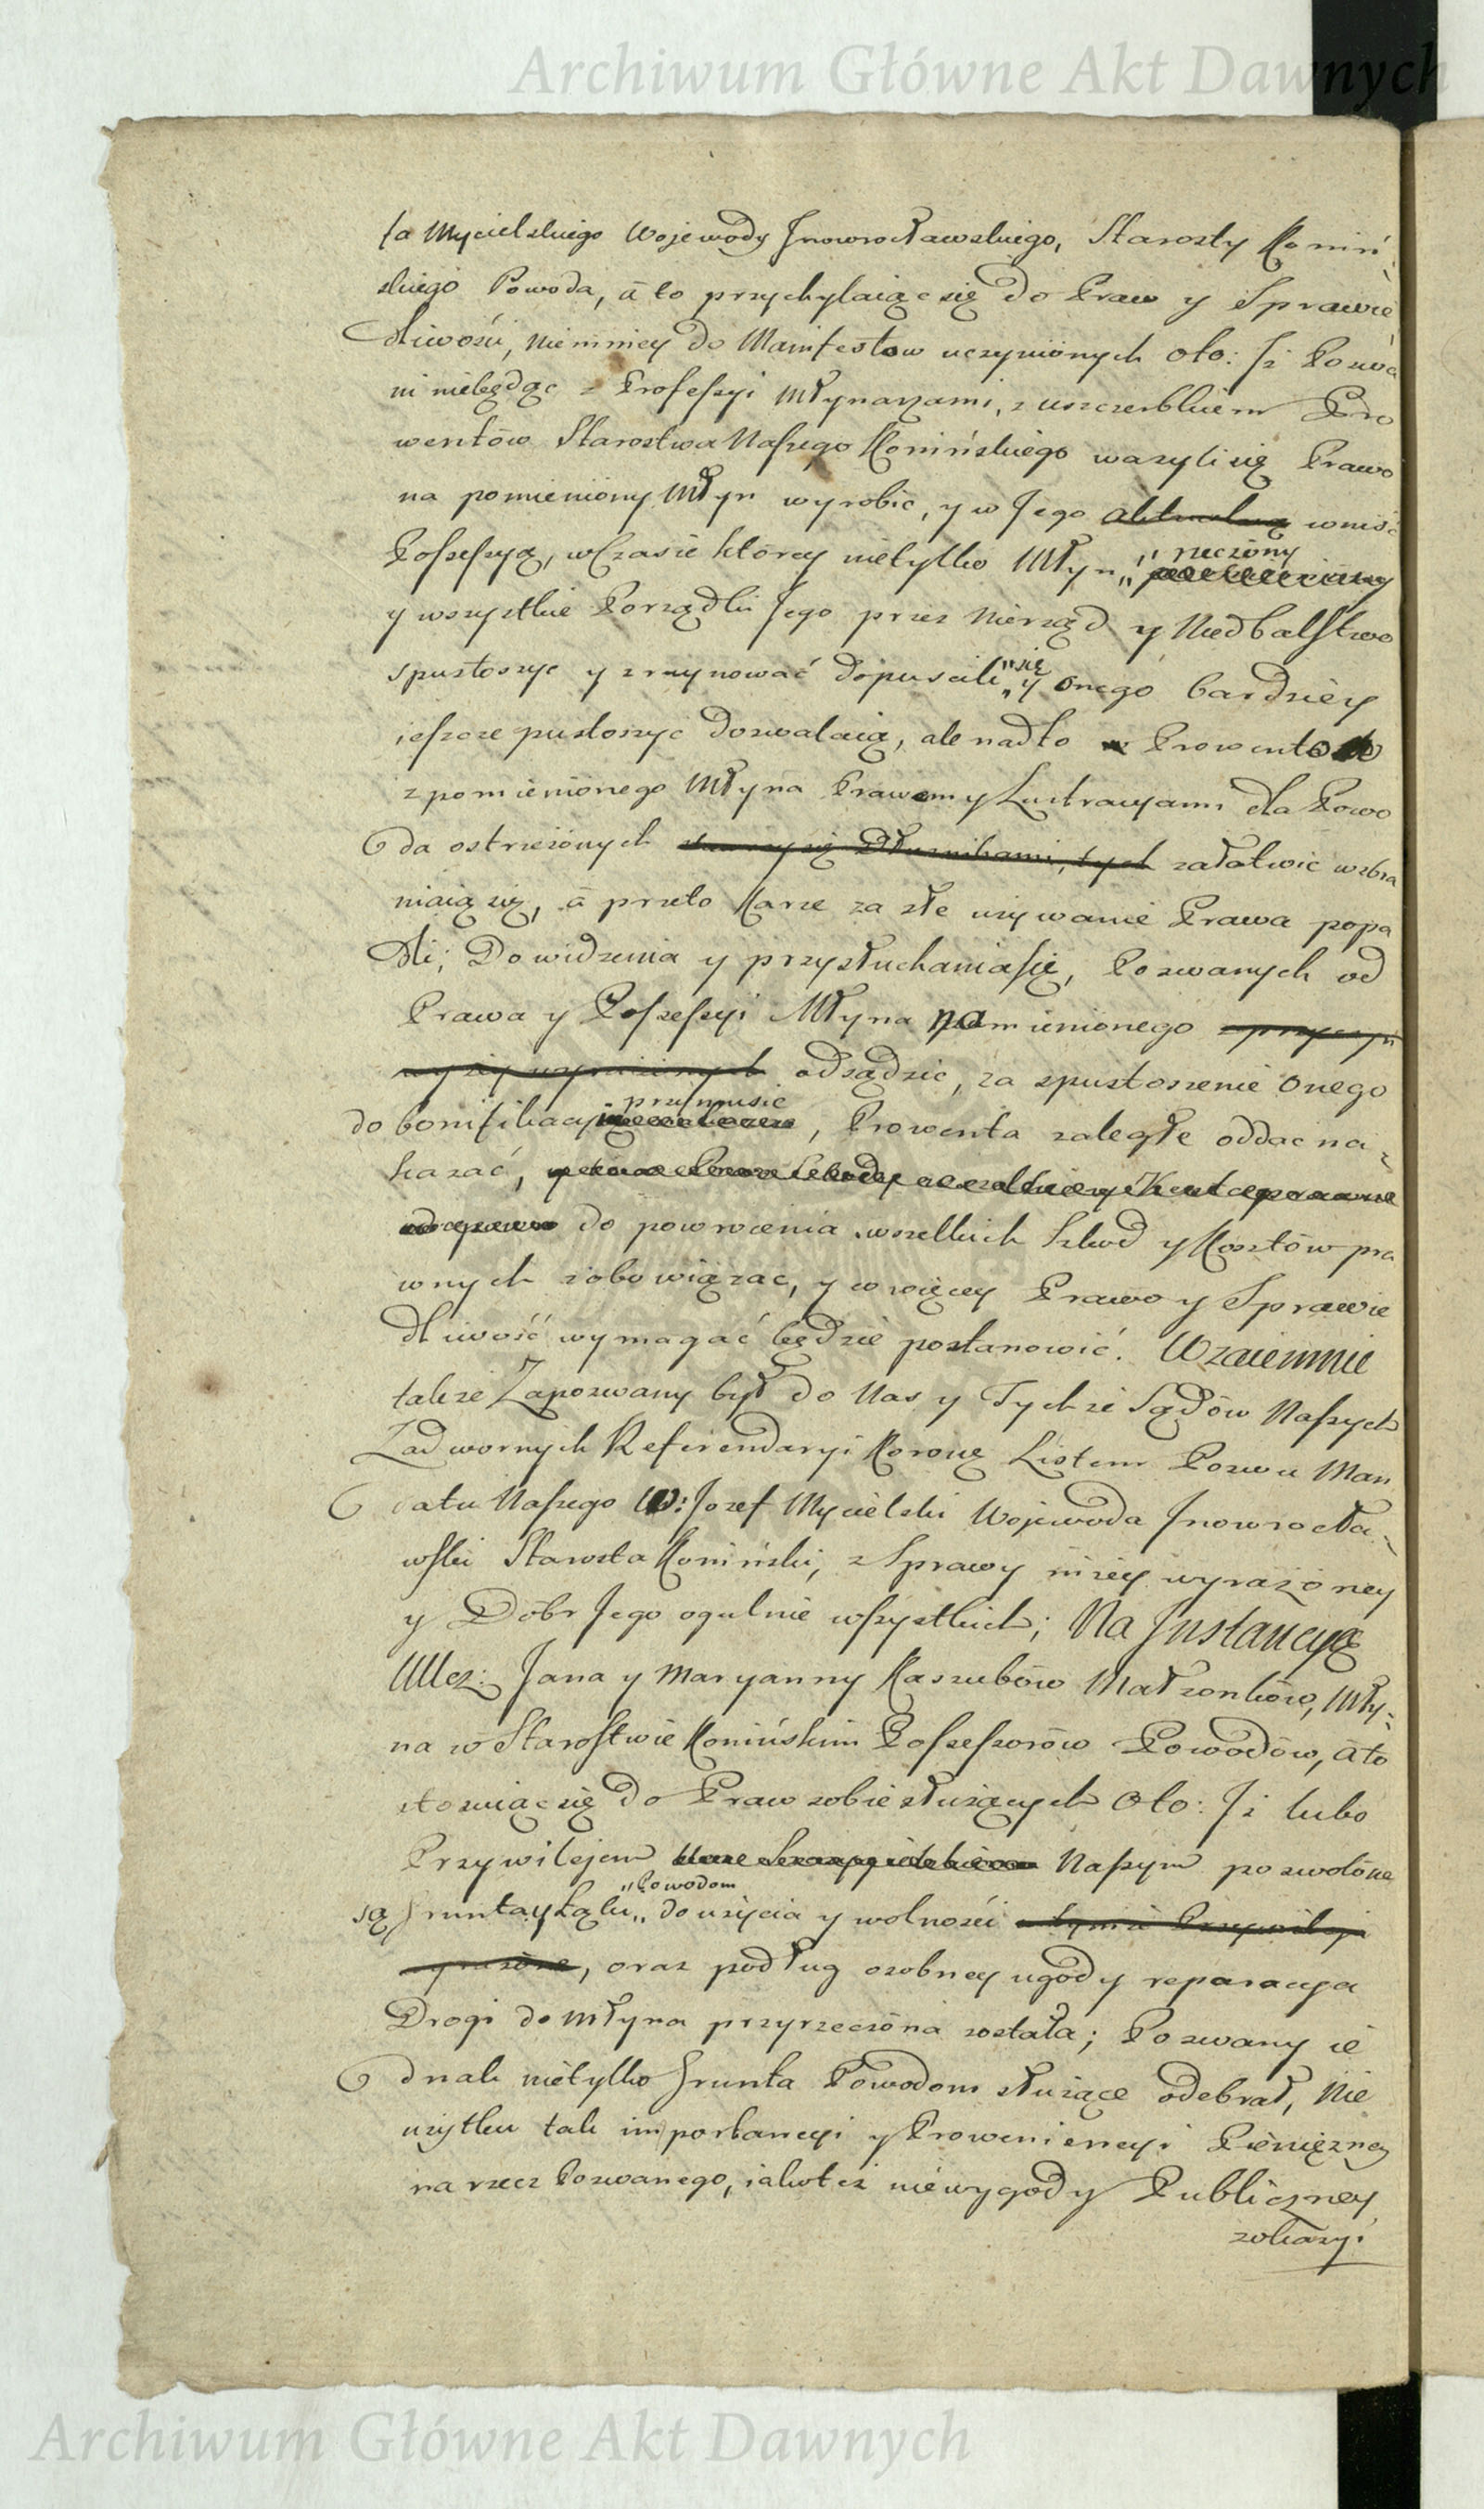 Archiwum Główne Akt Dawnych
ta Mycielskiego Wojewody Jnowrocławskiego, Starosty Koniń
skiego Powoda, á to przychylaiąc się do Praw y Sprawie
dliwośći, niemniey do Manifestow uczynionych oto: Jż Pozwa
ni niebędąc z Professyi Młynarzami, z uszczerbkiem Pro
wentów Starostwa Naszego Konińskiego ważyli się Prawo
na pomieniony Młyn wyrobic, y w Jego aktualną wniść
Possessyą, w Czasie ktorey nietylko Młyn „ rzeczony
y wszystkie Porządki Jego przez Nierząd y Niedbalstwo
spustoszyc y zruynować dopuscili „się „ y onego bardziey
ieszcze pustoszyc dozwalaią, ale nadto w Prowentow
z pomienionego Młyna Prawem y Lustracyami dla Powo
da ostrzeżonych Dłużnikami, tych załatwic wzbra
niaią się, á przeto Karze za złe używanie Prawa popa
dli; Do widzenia y przysłuchania się, Pozwanych od
Prawa y Possessyi Młyna pomienionego z przyczyn
wyżey wyrażonych odsądzic, za spustoszenie onego
do bonifikacyi przymusic, Prowenta zaległe oddac na
kazać, do powrocenia wszelkich Szkod y Kosztów pra
wnych zobowiązac, y co więcey Prawo y Sprawie
dliwość wymagać będzie postanowić. Wzaiemnie
także Zapozwany był do Nas y Tychże Sądów Naszych
Zadwornych Referendaryi Koronę Listem Pozwu Man
datu Naszego W: Jozef Mycielski Wojewoda Jnowrocła
wski Starosta Koniński, z Sprawy niżey wyrażoney
y Dobr Jego ogulnie wszystkich; Na Jnstancyą
UUcz: Jana y Maryanny Kaszubów Małżonków, Mły:
na w Starostwie Konińskim Possessorów Powodów, á to
stosuiąc się do Praw sobie służących oto: Jż lubo
Przywilejem Naszym pozwolóne
są Grunta y Łąki „Powodom „ do użycia y wolnośći w tymże Przywileju
wyrażone, oraz podług osobney ugody reparacya
Drogi do Młyna przyrzeczóna została; Pozwany ie
dnak nietylko Grunta Powodom służące odebrał, Nie
użytku tak importancyi y Prowenieneyi Pieniężney
na rzecz Pozwanego, iako też niewygody Publiczney
z okazyi
Archiwum Główne Akt Dawnych